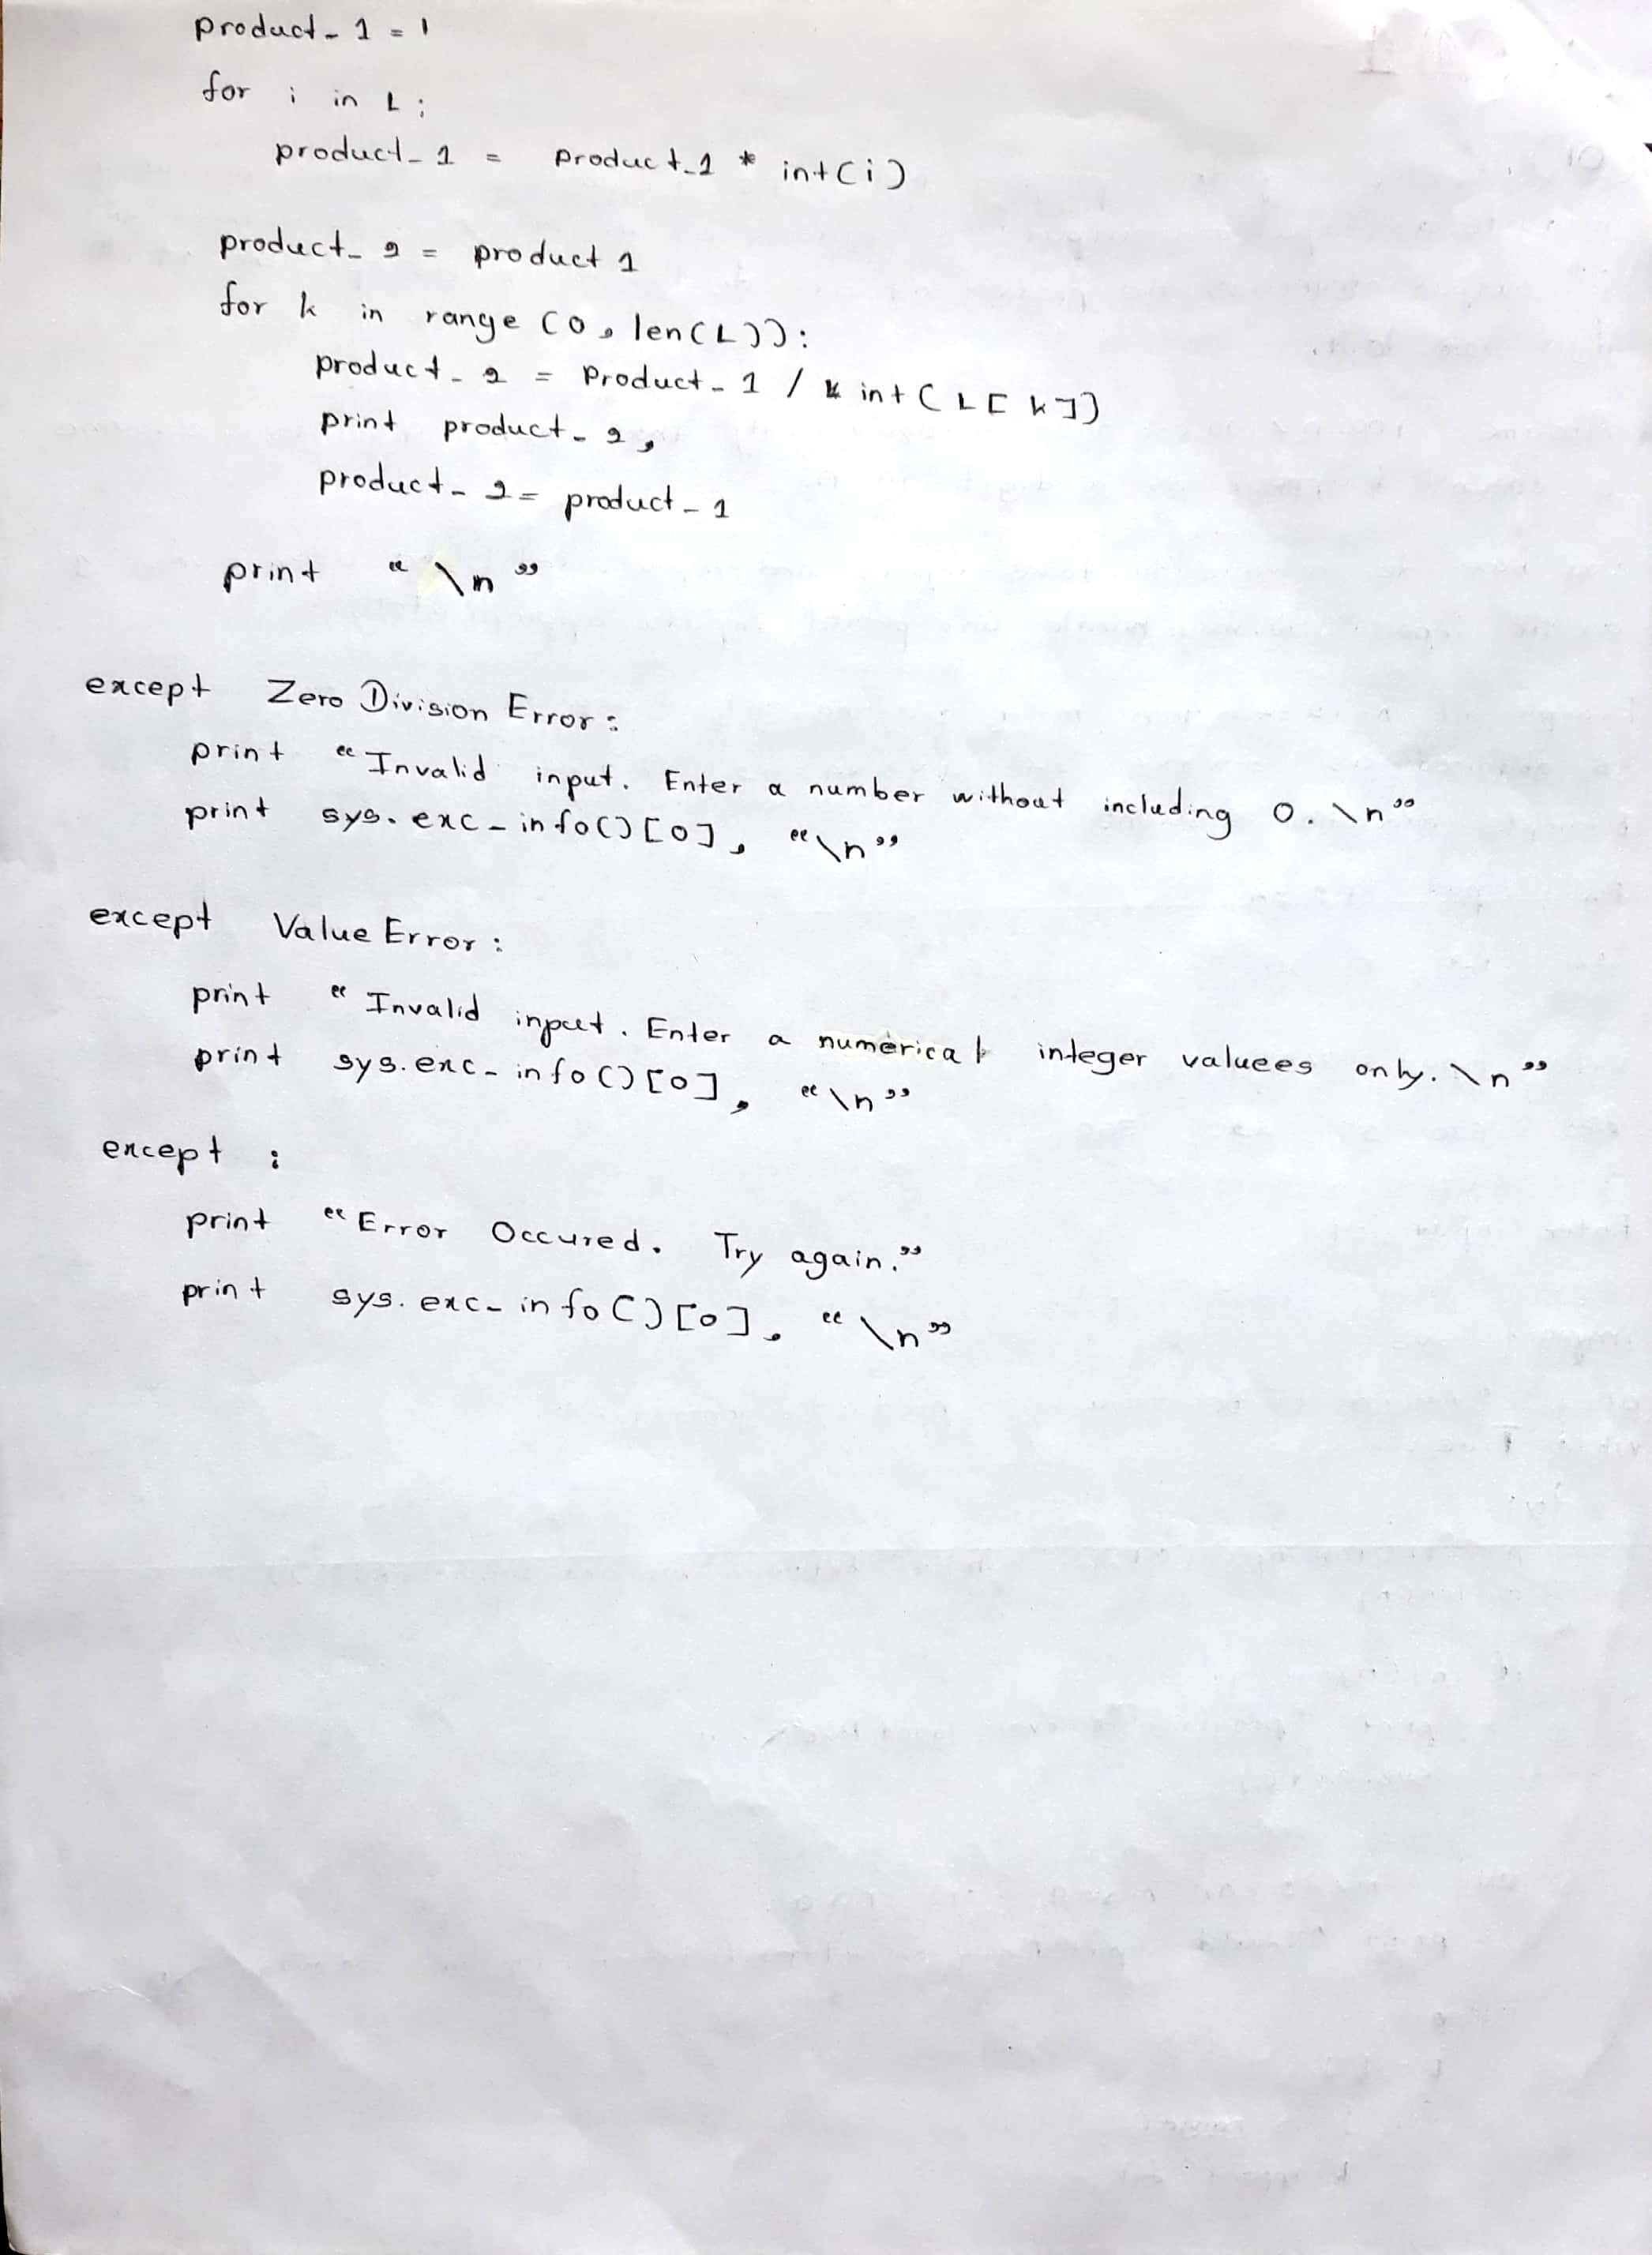 product_1 = 1
for i in L:
product_1 = product_1 * int(i)
product_2 = product 1
for k in range (0, len(L)):
product_2 = Product_1 / int(L[k])
print product_2,
product_2 = product_1
print "\n"
except Zero Division Error:
print "Invalid input. Enter a number without including 0. \n"
print sys.exc_info()[0], "\n"
except Value Error:
print "Invalid input. Enter a numerical integer valuees only. \n"
print sys.exc_info()[0], "\n"
except :
print "Error Occured. Try again."
print sys.exc_info()[0], "\n"